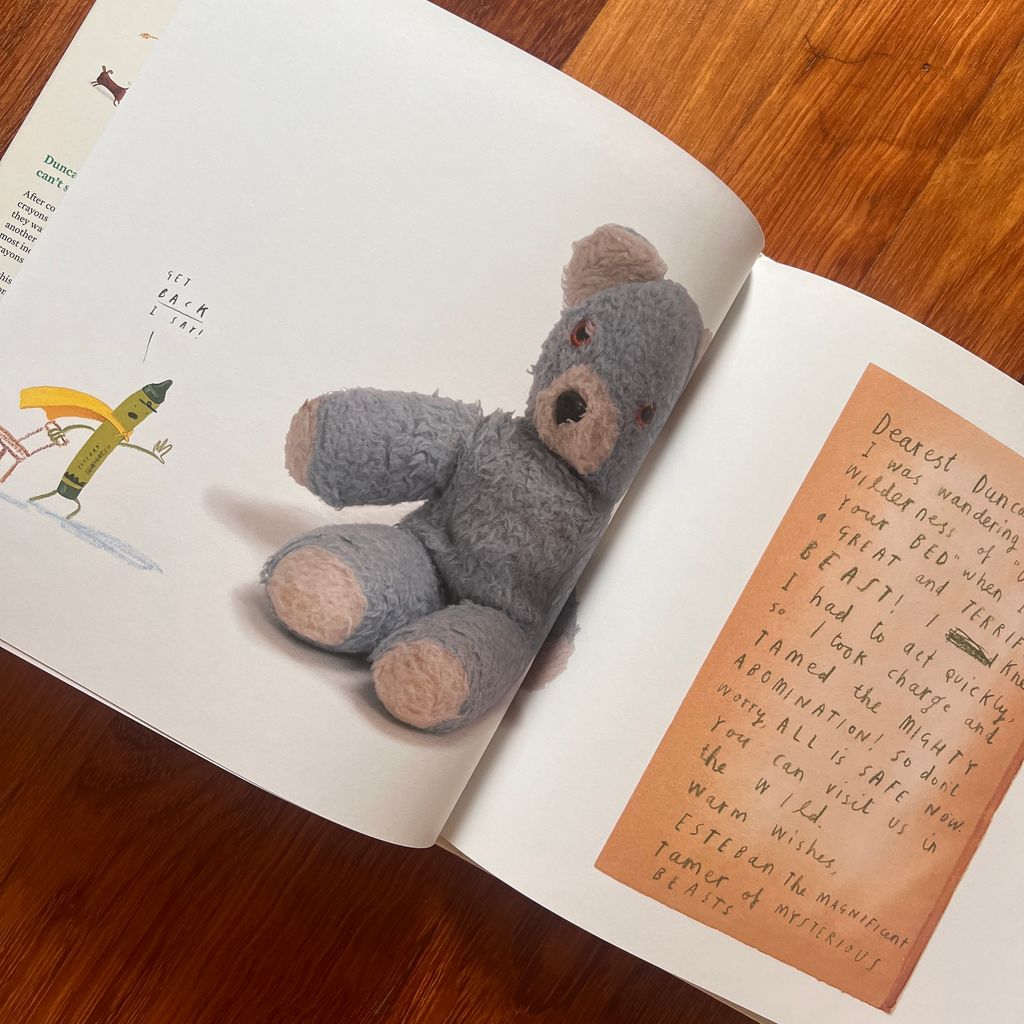 Dunca
can't s
After co
crayons
they wa
another
most inc
rayons
his
GET
BACK
I SAY!
ESTEBAN
Dearest Dunca
I was wandering
wilderness of "U
YOUR BED" when I
a GREAT and TERRIF
BEAST! I Kne
I had to act quickly,
so I took charge and
TAMED the MIGHTY
ABOMINATION! So dont
worry, ALL is SAFE NOW.
You can visit us in
the wild.
Warm wishes,
ESTEBAN The MAGNIFICENT
Tamer of MYSTERIOUS
BEASTS